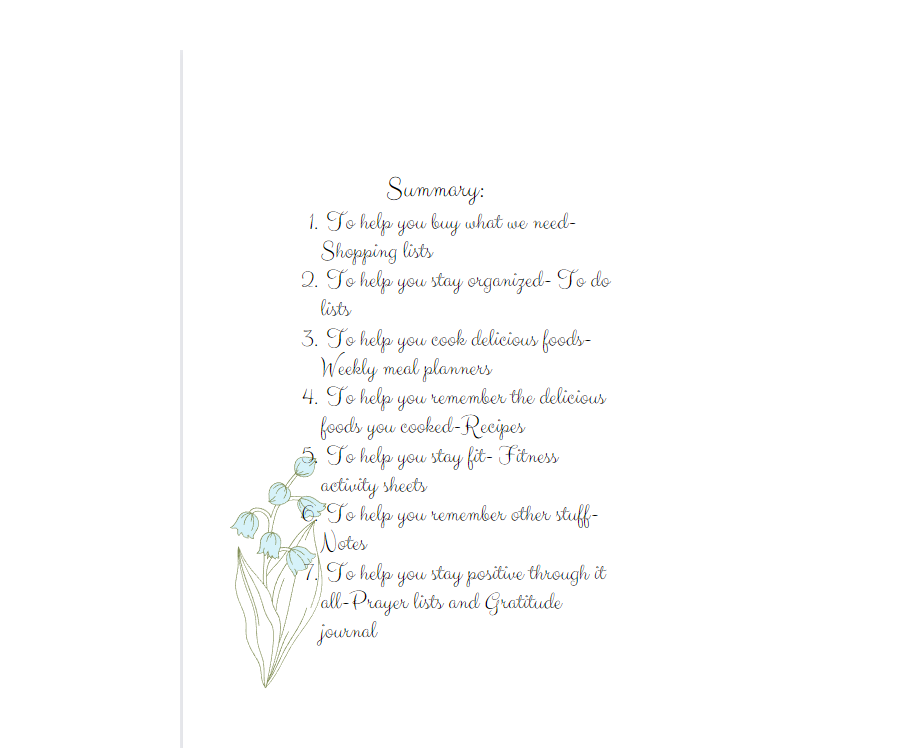 Summary:
1. To help you buy what we need-
Shopping lists
2. To help you stay organized- To do
lists
3. To help you cook delicious foods-
Weekly meal planners
4. To help you remember the delicious
foods you cooked-Recipes
5. To help you stay fit- Fitness
activity sheets
6. To help you remember other stuff-
Notes
7. To help you stay positive through it
all-Prayer lists and Gratitude
journal